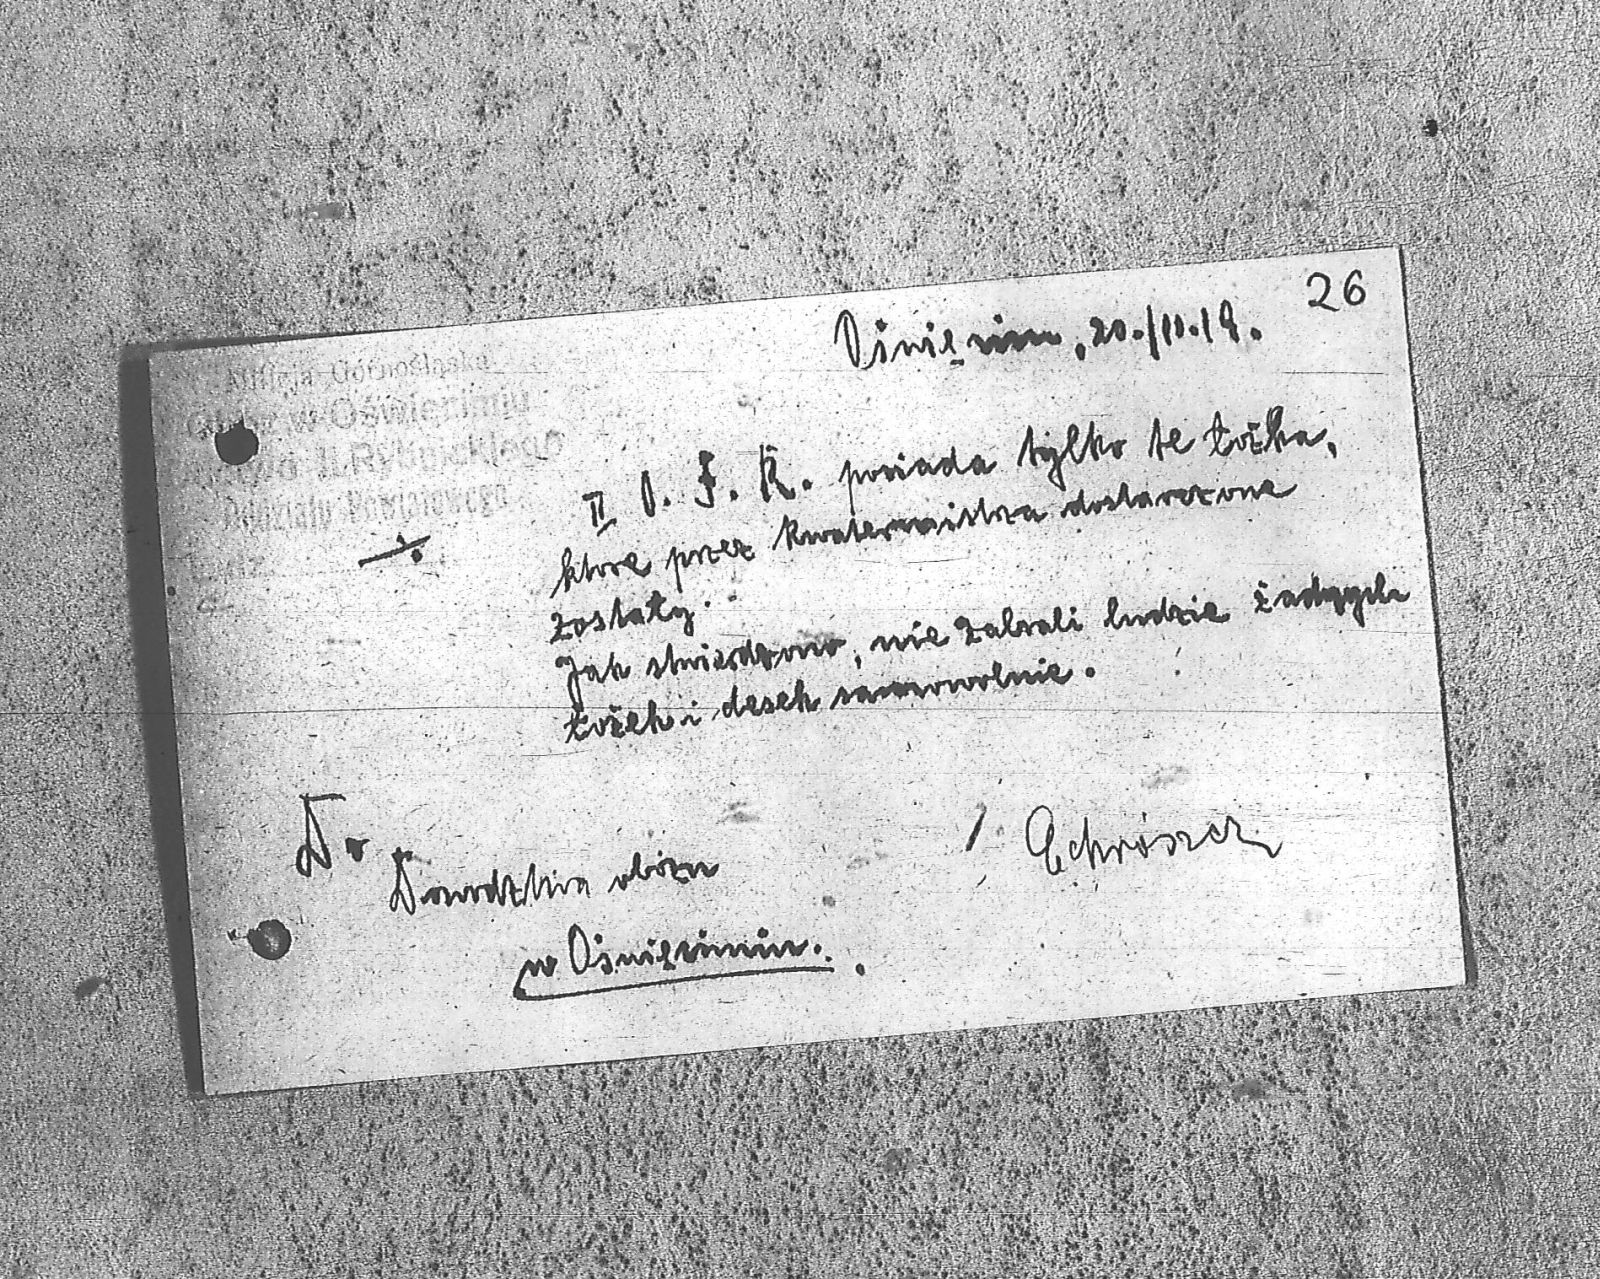 26
Oświęcim, 20./11.19.
Milicja Górnośląska
w Oświęcimiu
II. Rybnickiego
Oddziału Powiatowego
II O. P. R. posiada tylko te łożka,
ktore przez kwatermistrza dostarczone
zostały.
Jak stwierdzono, nie zabrali ludzie żadnych
łożek i desek samowolnie.
Do
Dowodztwa obozu
w Oświęcimiu.